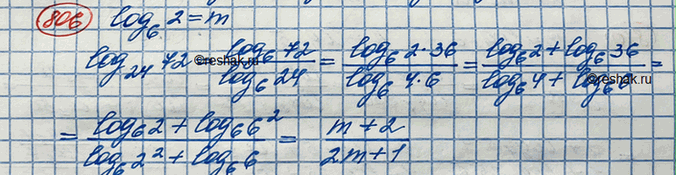 806 log₆ 2 = m
log₂₄ 72 = log₆ 72 / log₆ 24 = log₆ 2·36 / log₆ 4·6 = log₆ 2 + log₆ 36 / log₆ 4 + log₆ 6 =
= log₆ 2 + log₆ 6² / log₆ 2² + log₆ 6 = m + 2 / 2m + 1
©reshak.ru
©reshak.ru